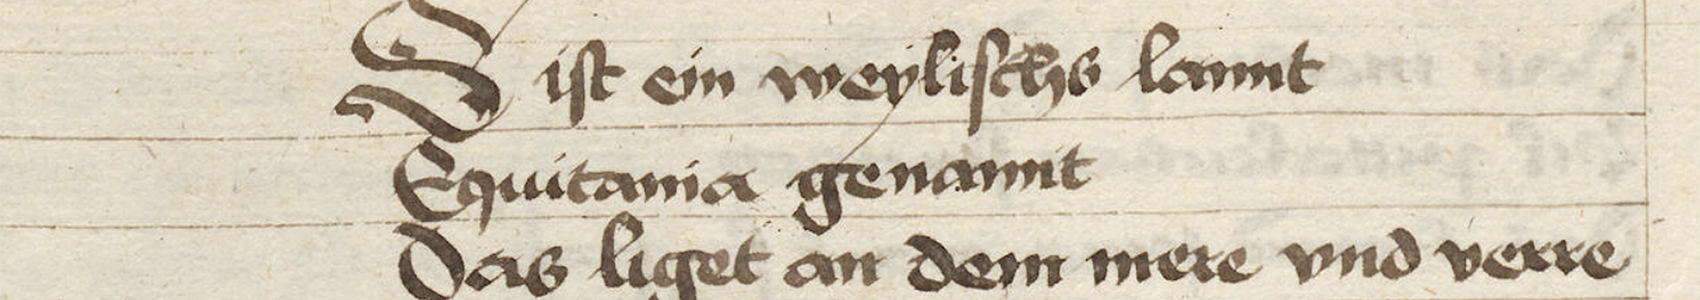 S ist ein weylischs lannt
Equitania genannt
Das liget an dem mere vnd verre